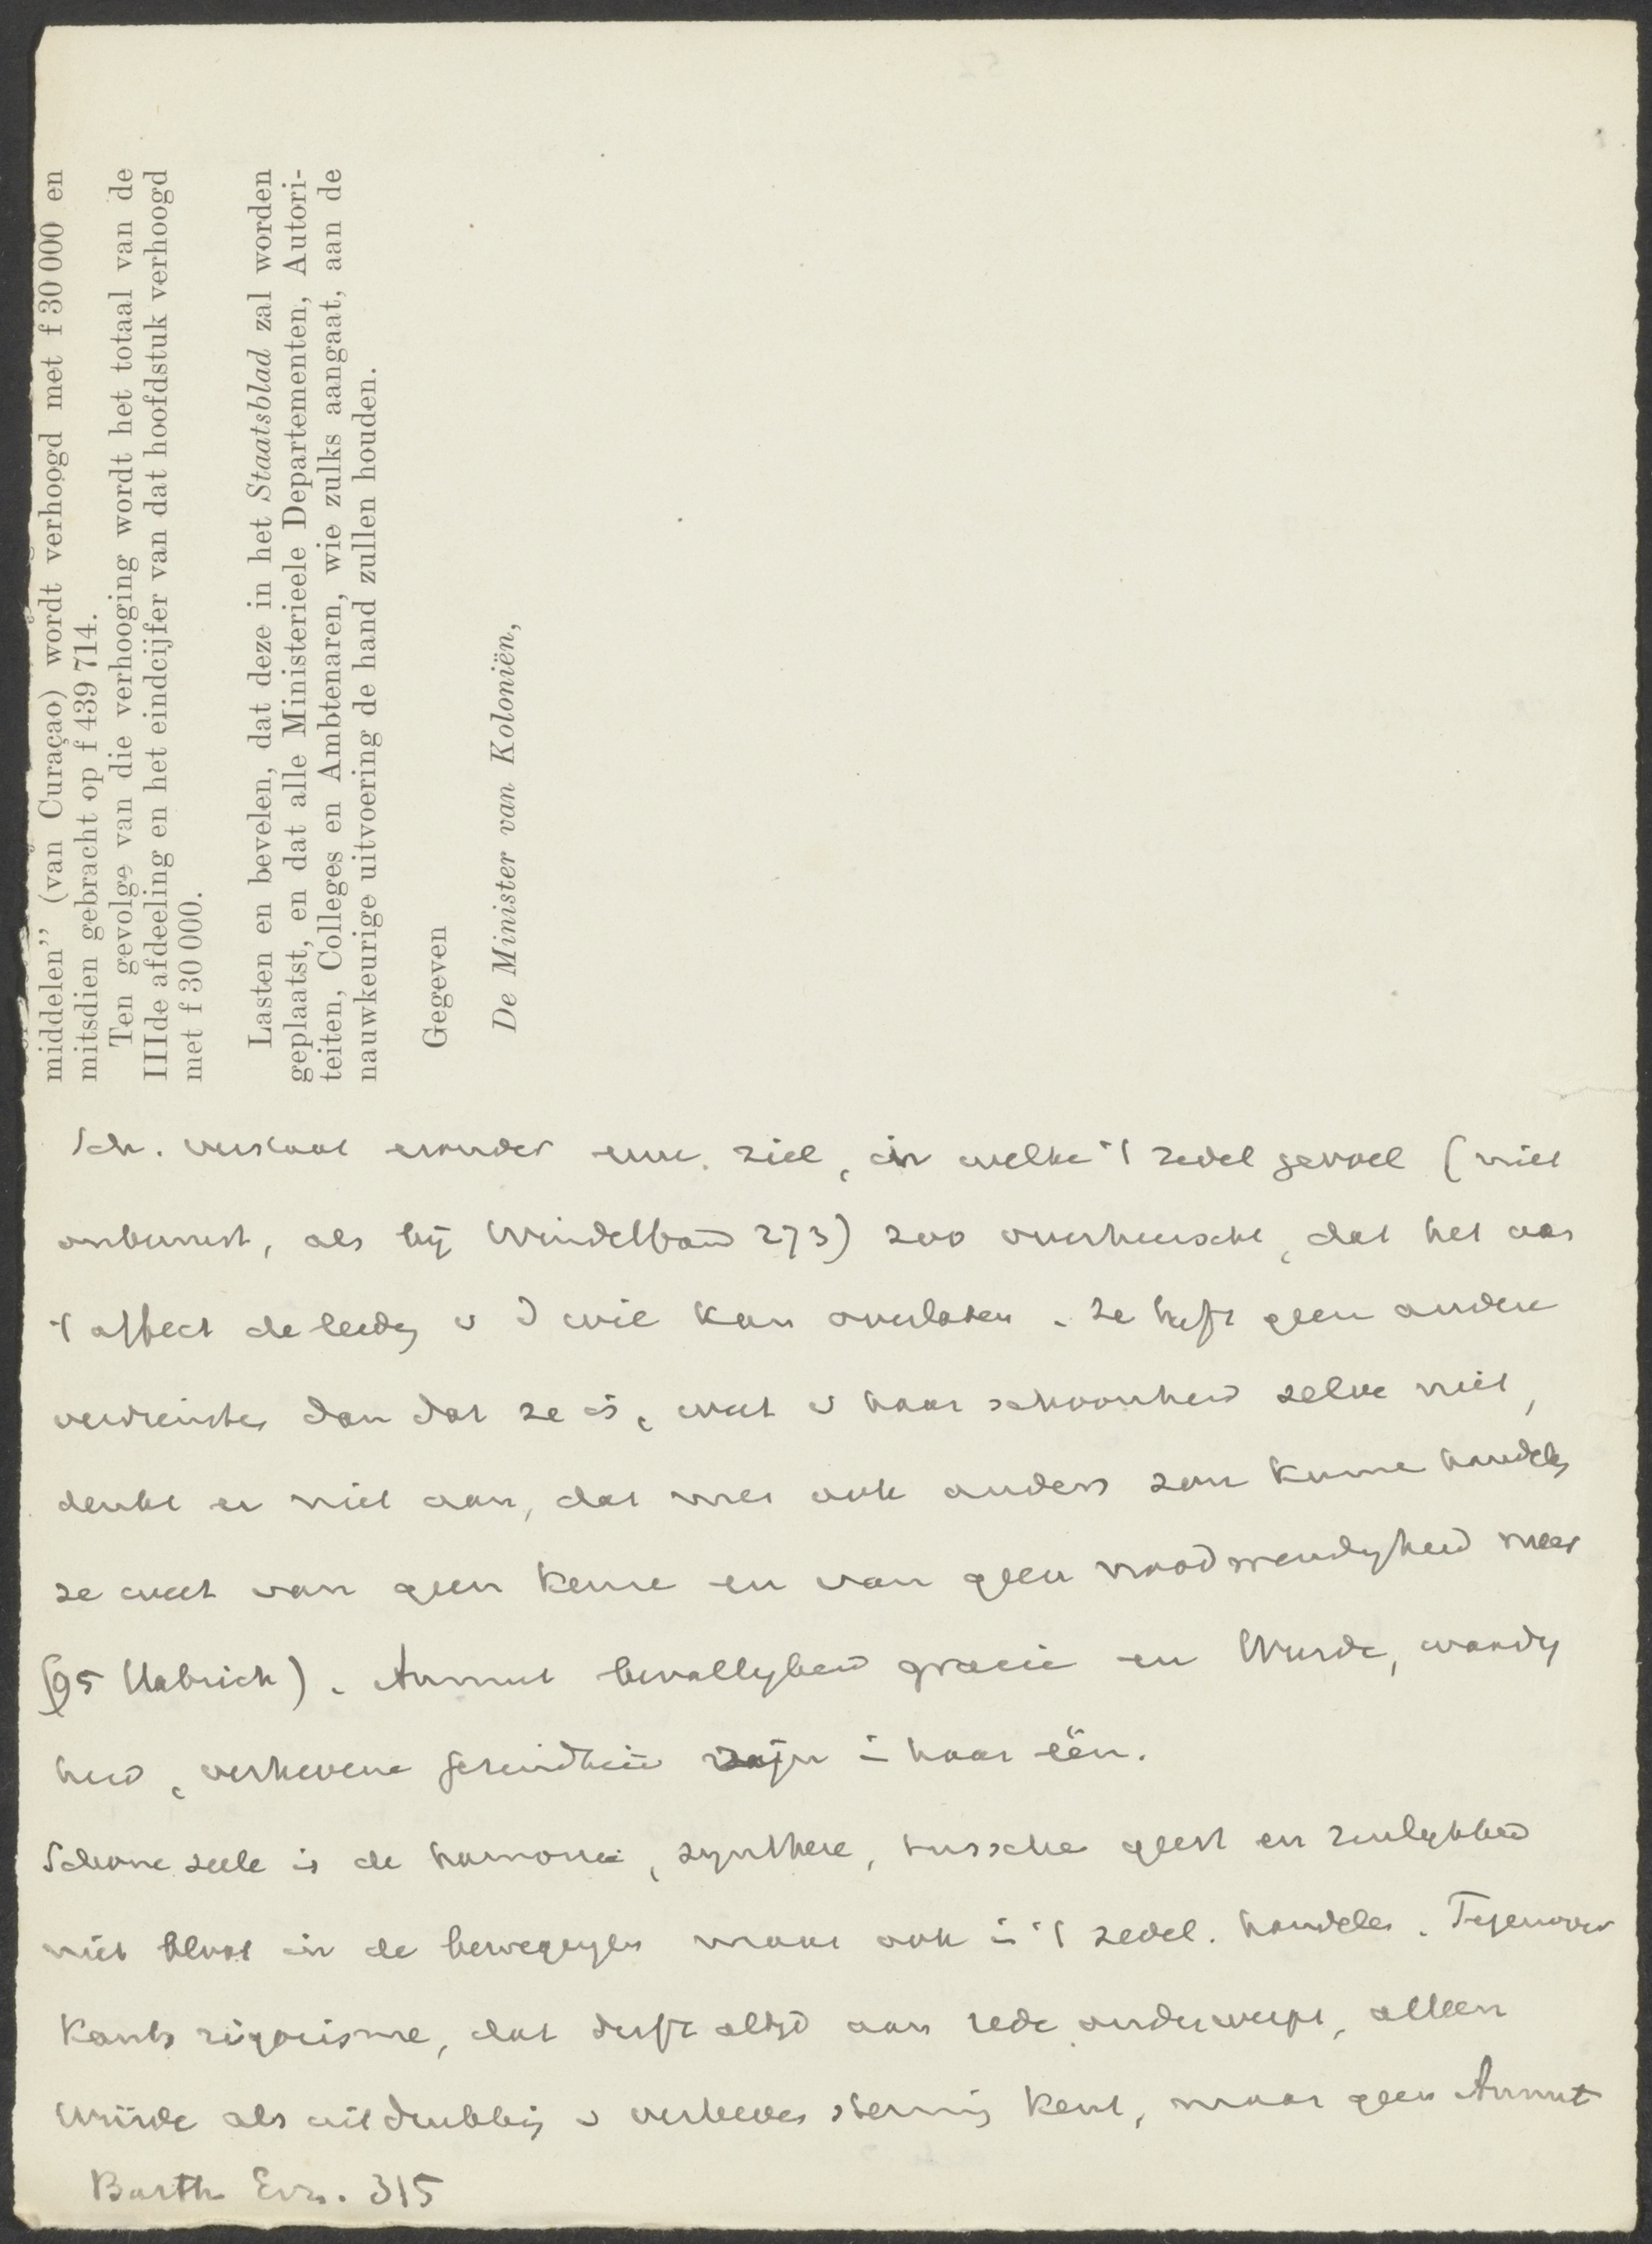 middelen” (van Curaçao) wordt verhoogd met f 30 000 en
mitsdien gebracht op f 439 714.
Ten gevolge van die verhooging wordt het totaal van de
IIIde afdeeling en het eindcijfer van dat hoofdstuk verhoogd
met f 30 000.
Lasten en bevelen, dat deze in het Staatsblad zal worden
geplaatst, en dat alle Ministerieele Departementen, Autori-
teiten, Colleges en Ambtenaren, wie zulks aangaat, aan de
nauwkeurige uitvoering de hand zullen houden.
Gegeven
De Minister van Koloniën,
Sch. verstaat eronder ziel, in welke 't zedel gevoel (niet
onbewust, als bij Windelband 273) zoo overheerscht, dat het aan
't affect de leidg v d wil kan overlaten. Ze heeft geen andere
verdienste dan dat ze is, weet v haar schoonheid zelve niet,
denkt er niet aan, dat men ook anders zou kunne handele
ze weet van geen keuze en van geen noodwendigheid meer
(95 Ulbrich). Anmut bevalligheid gracie en Würde, waardig
heid, verhevene gezindheid zijn in haar één.
Schone seele is de harmonie, synthese, tussche geest en zinlijkheid
niet bloot in de bewegingen maar ook in 't zedel. handelen. Tegenover
Kants rigorisme, dat drift altijd aan rede onderwerpt, alleen
Würde als uitdrukking v verheven stemming kent, maar geen Anmut
Barth Erz. 315